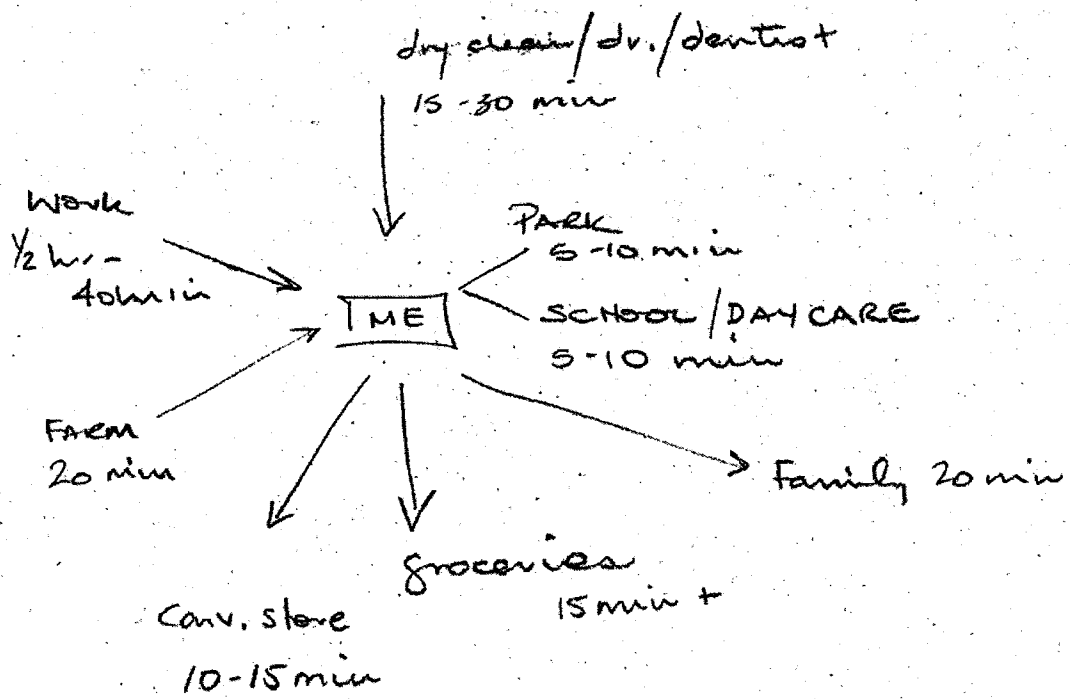 dry clean/dr./dentist
15-30 min
Work
1/2 hr-
40min
PARK
5-10 min
ME
SCHOOL/DAYCARE
5-10 min
FARM
20 min
Family 20 min
groceries
15 min +
Conv. store
10-15 min